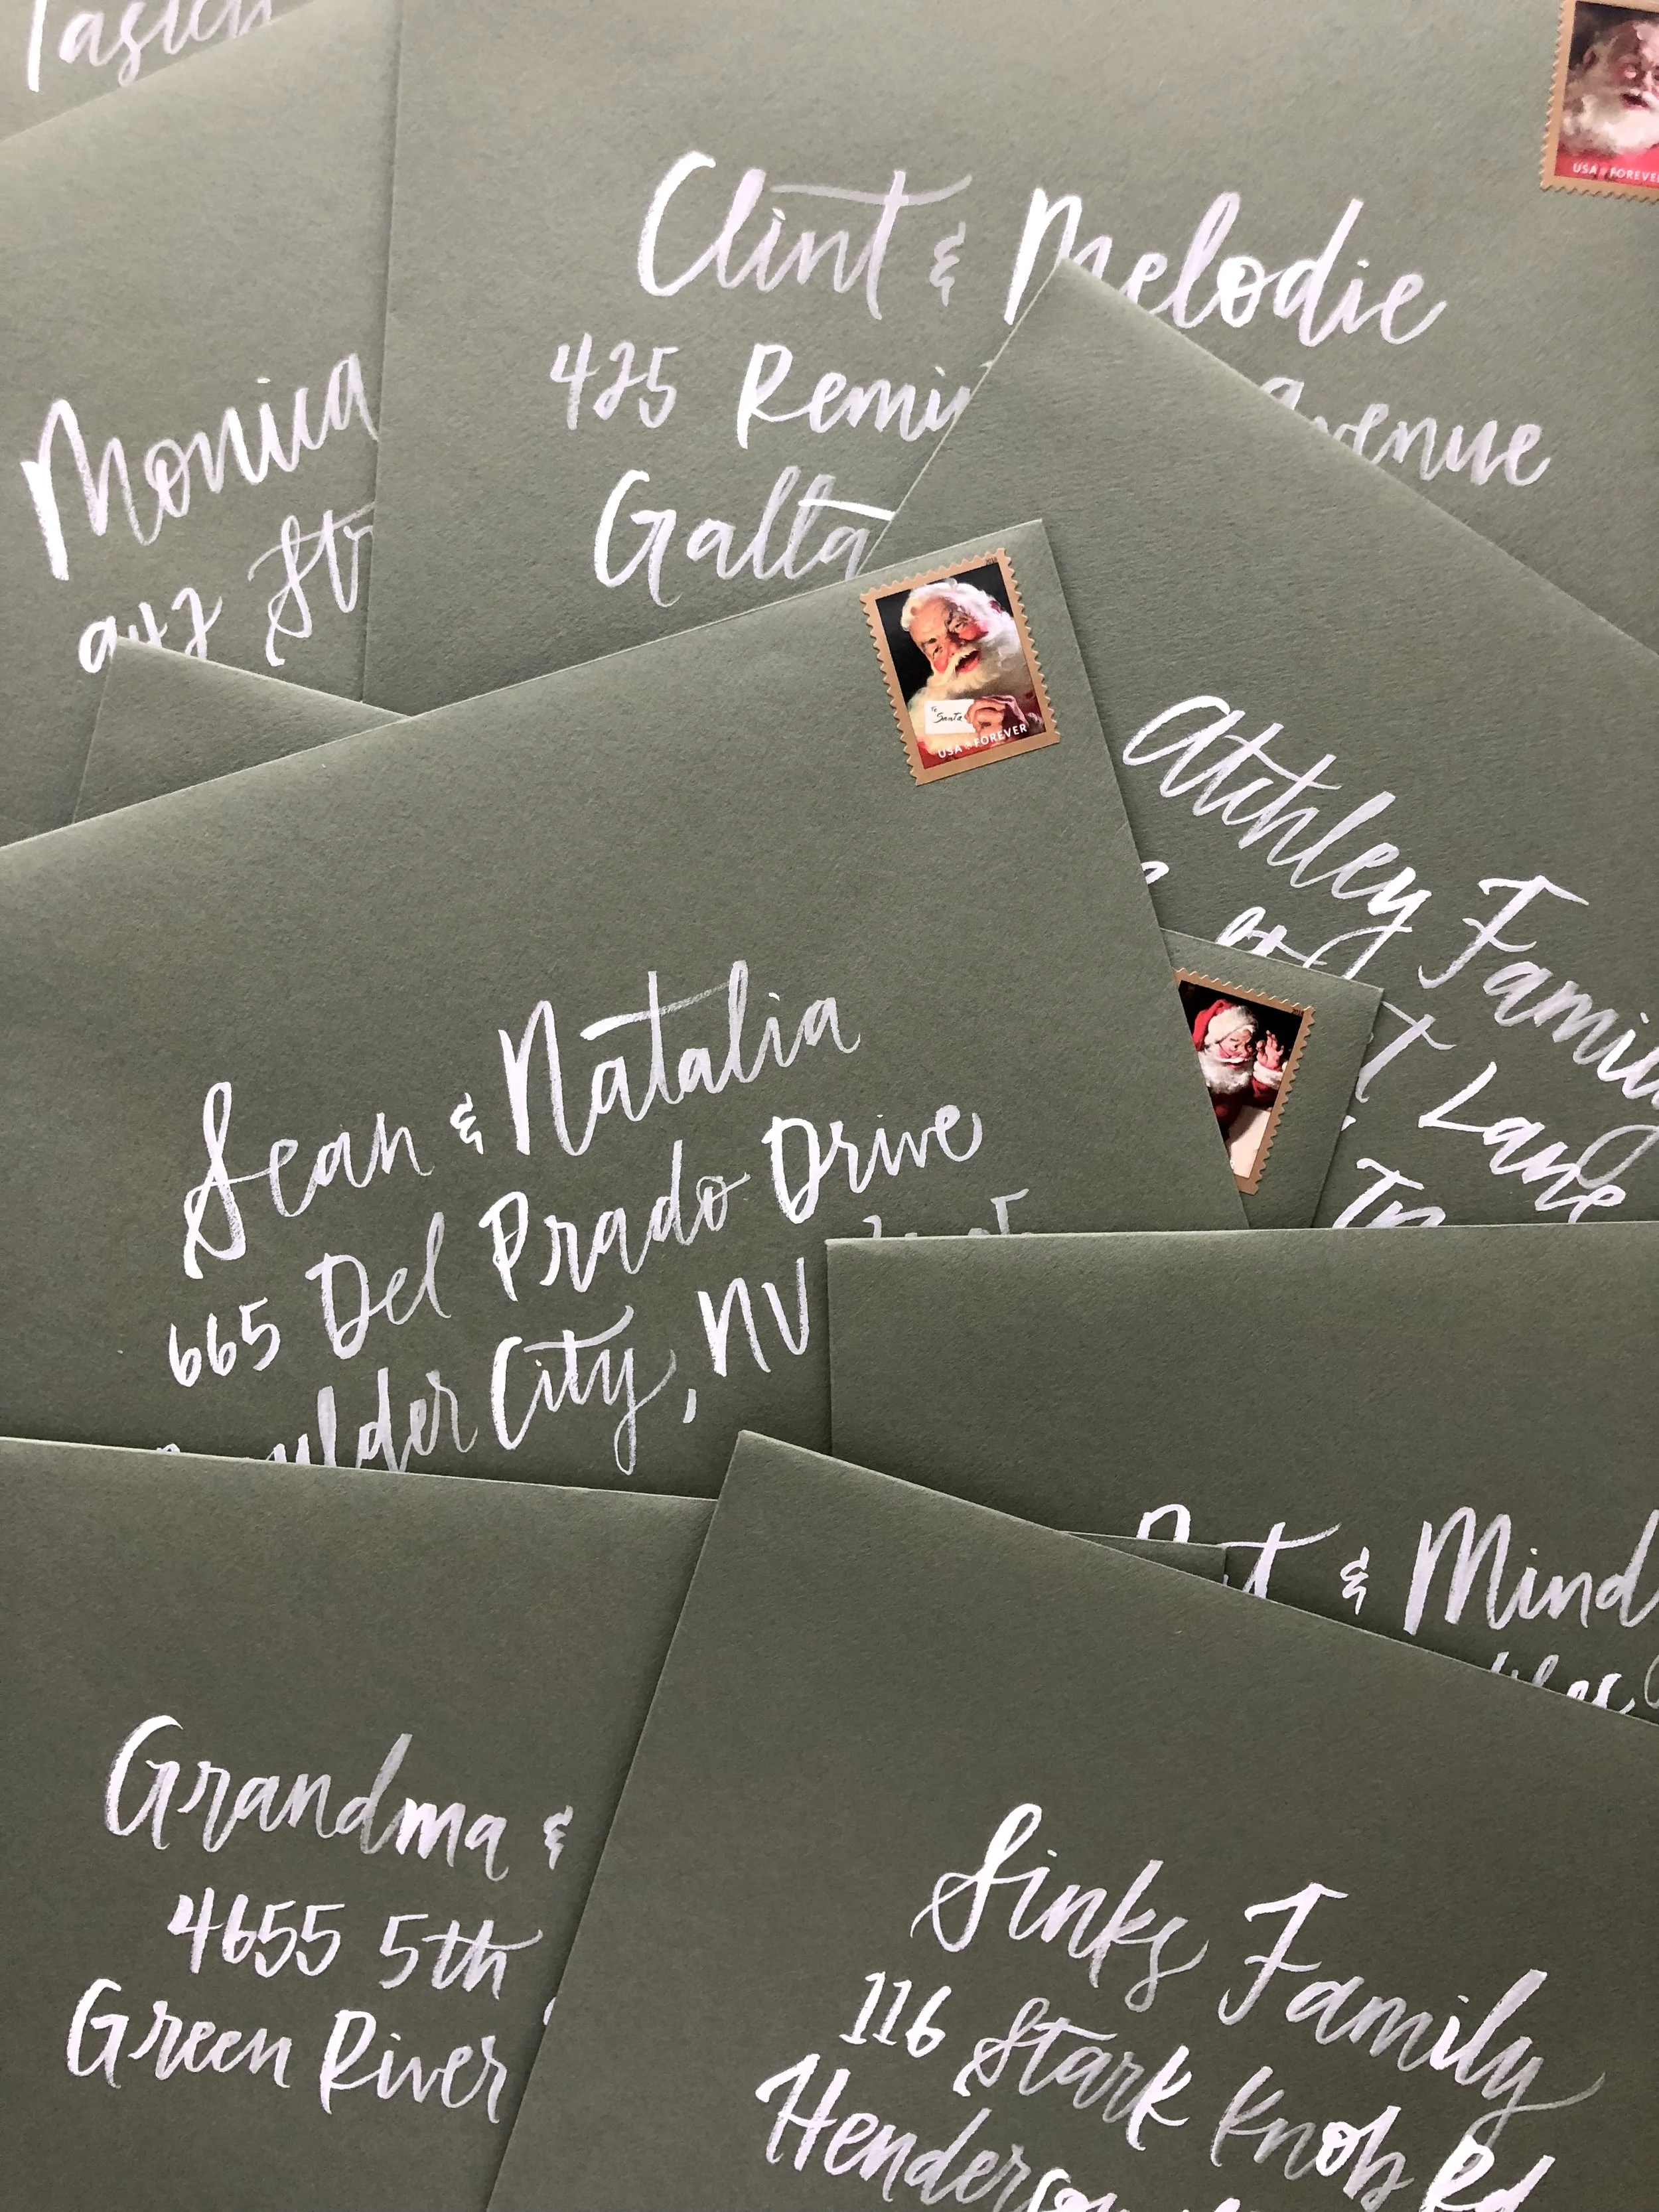 Clint & Melodie
425 Remi
Avenue
Gallta
Monica
942 St
USA FOREVER
To Santa
USA FOREVER
Atchley Family
Lane
Sean & Natalia
665 Del Prado Drive
Boulder City, NV
& Mind
Grandma &
4655 5th
Green River
Sinks Family
116 Stark Knob Rd
Henderson